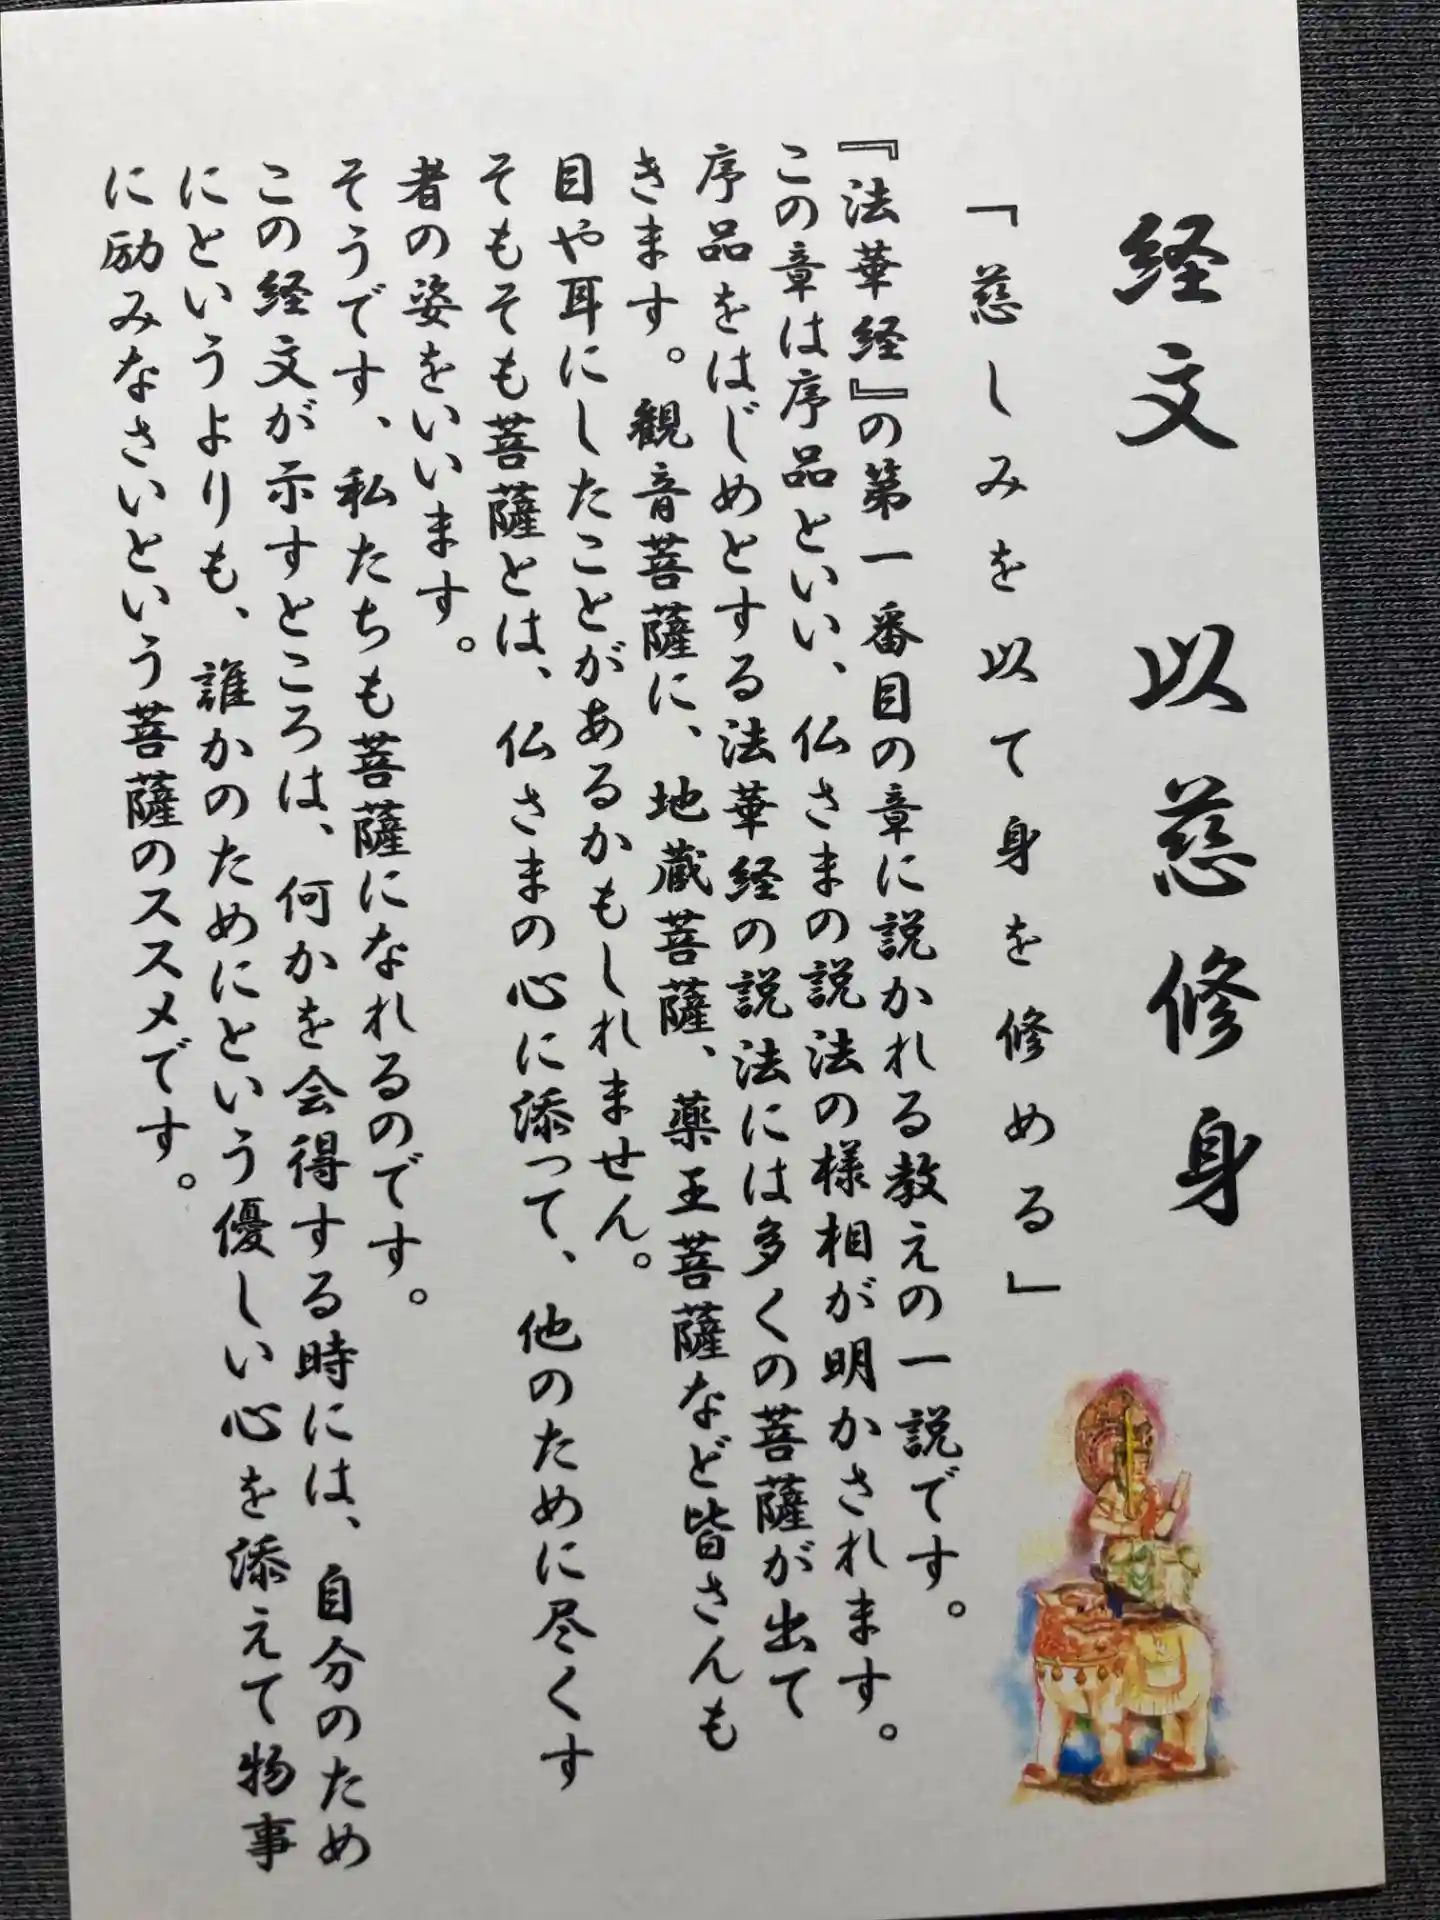 経文　以慈修身
「慈しみを以て身を修める」
『法華経』の第一番目の章に説かれる教えの一説です。
この章は序品といい、仏さまの説法の様相が明かされます。
序品をはじめとする法華経の説法には多くの菩薩が出て
きます。観音菩薩に、地蔵菩薩、薬王菩薩など皆さんも
目や耳にしたことがあるかもしれません。
そもそも菩薩とは、仏さまの心に添って、他のために尽くす
者の姿をいいます。
そうです、私たちも菩薩になれるのです。
この経文が示すところは、何かを会得する時には、自分のため
にというよりも、誰かのためにという優しい心を添えて物事
に励みなさいという菩薩のススメです。